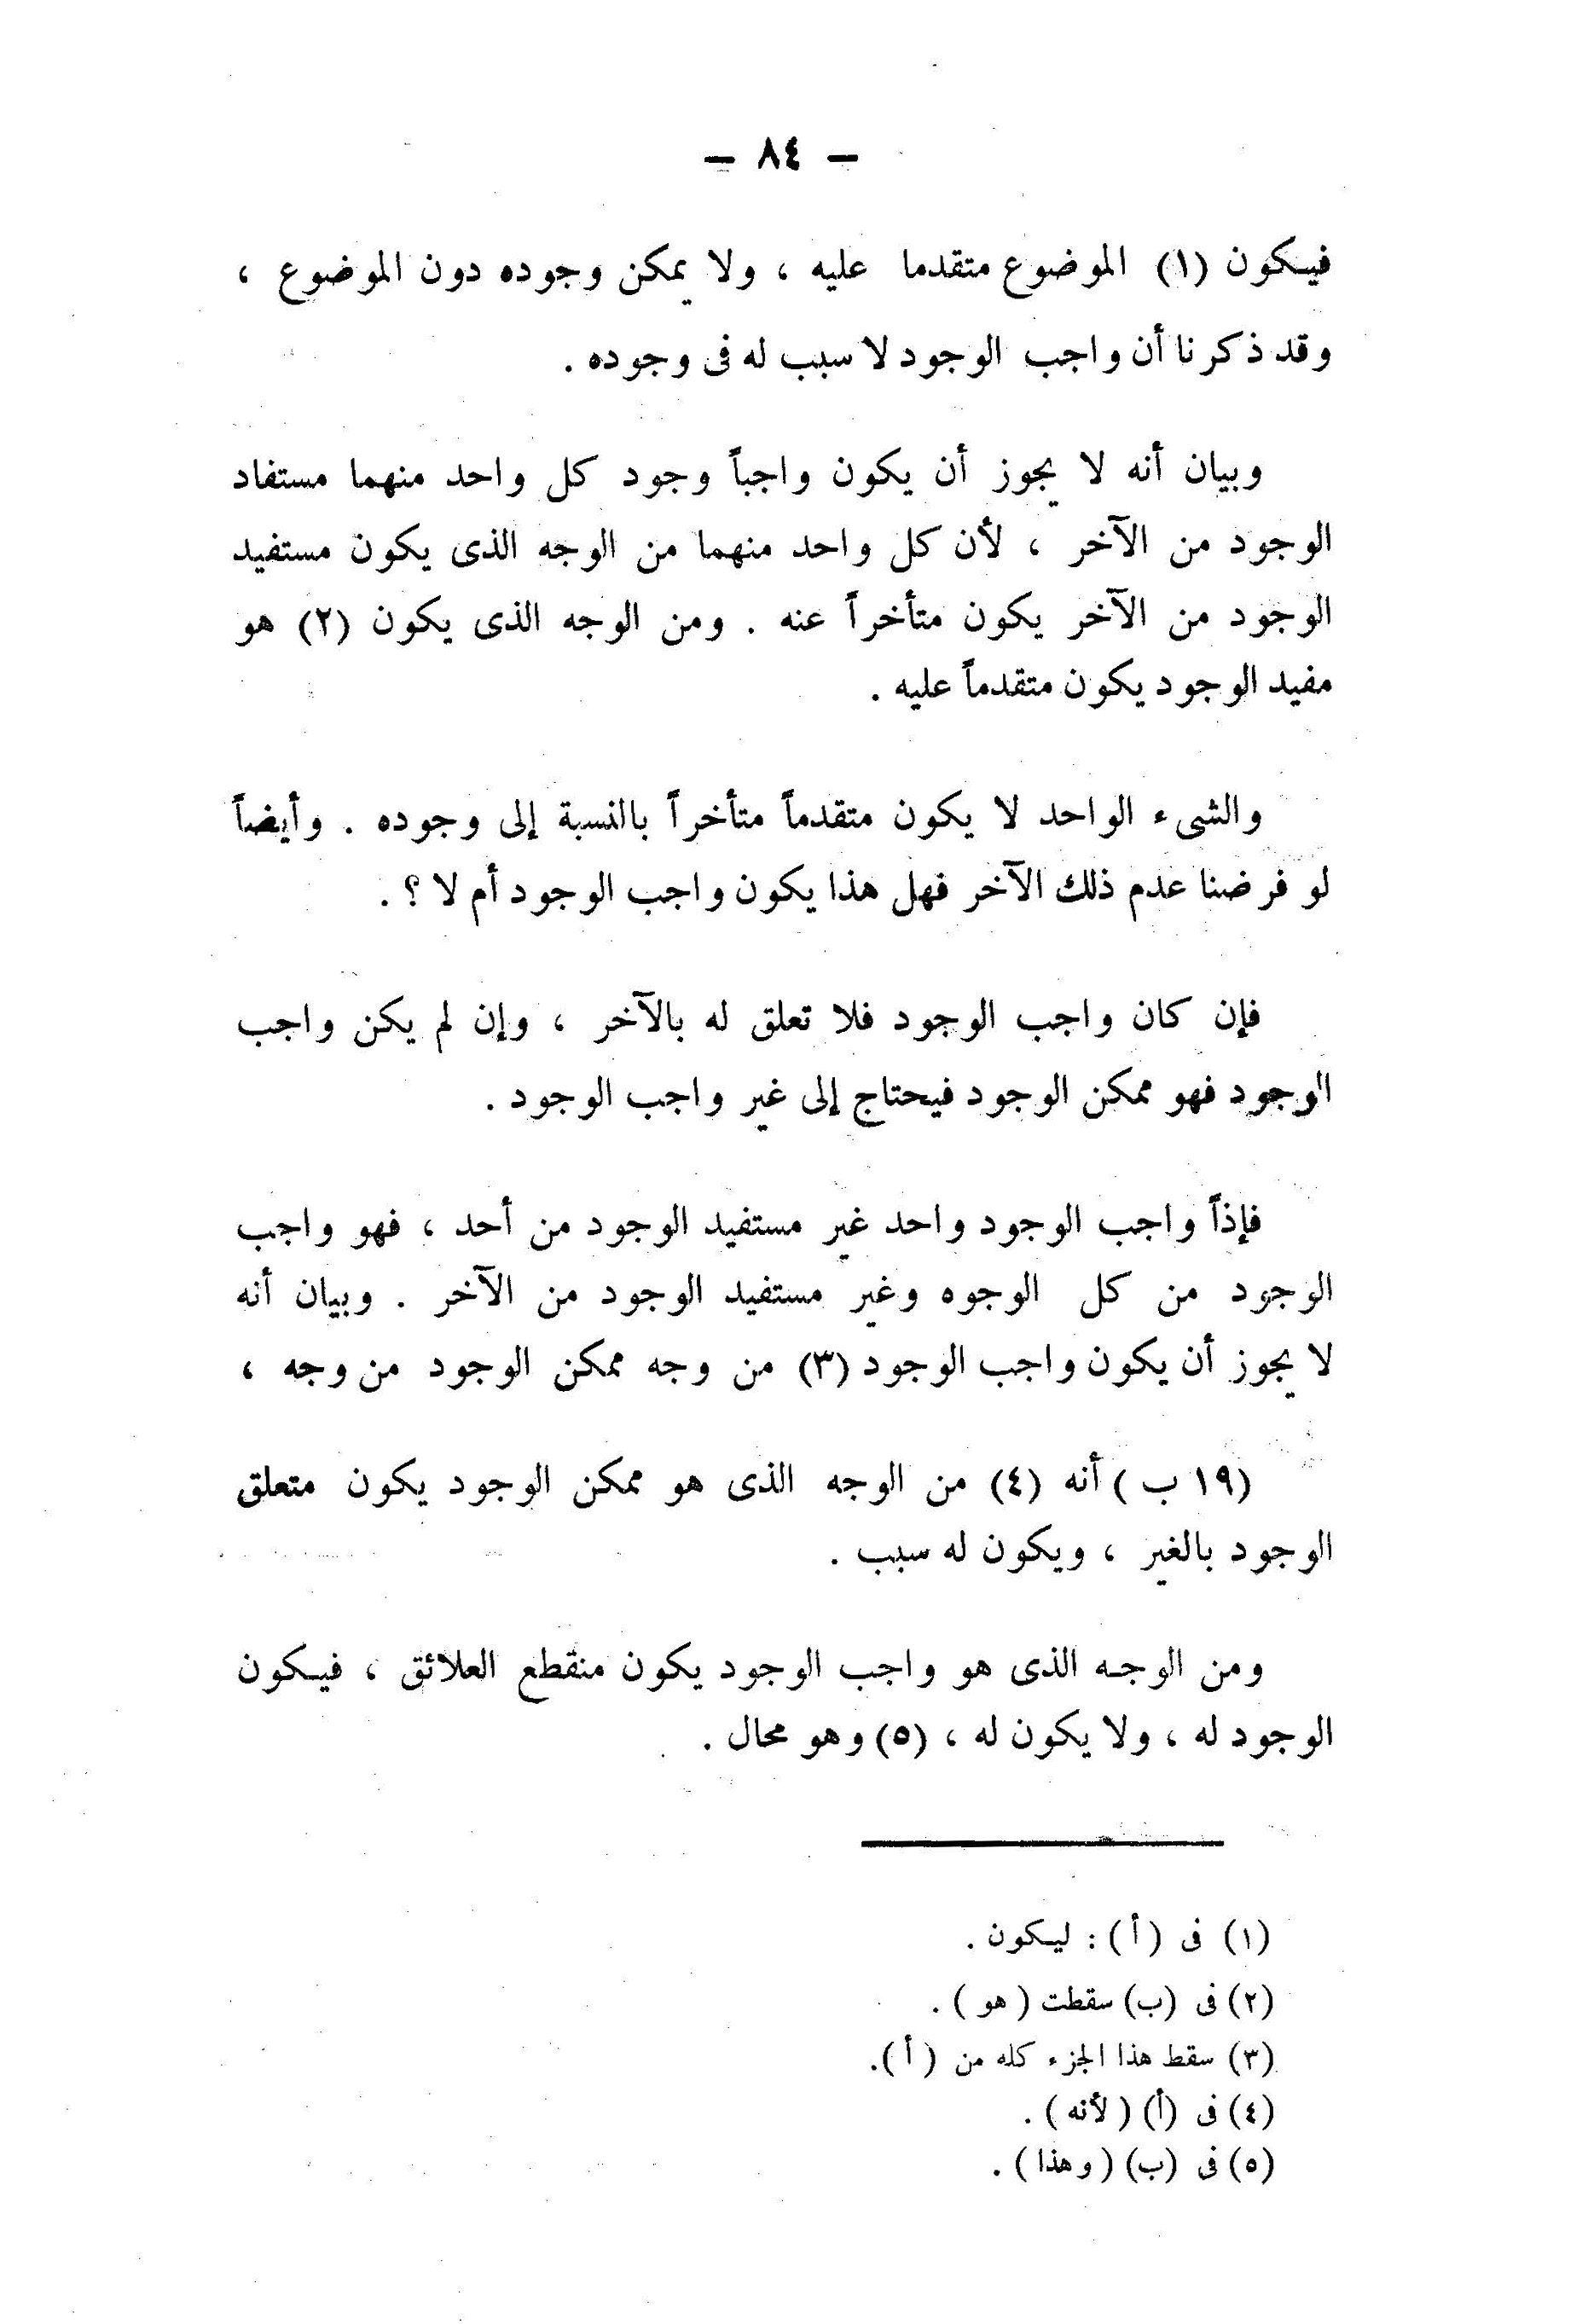 — ٨٤ —
فيكون (١) الموضوع متقدما عليه ، ولا يمكن وجوده دون الموضوع ،
وقد ذكرنا أن واجب الوجود لا سبب له فى وجوده .
وبيان أنه لا يجوز أن يكون واجباً وجود كل واحد منهما مستفاد
الوجود من الآخر ، لأن كل واحد منهما من الوجه الذى يكون مستفيد
الوجود من الآخر يكون متأخراً عنه . ومن الوجه الذى يكون (٢) هو
مفيد الوجود يكون متقدماً عليه .
والشىء الواحد لا يكون متقدماً متأخراً بالنسبة إلى وجوده . وأيضاً
لو فرضنا عدم ذلك الآخر فهل هذا يكون واجب الوجود أم لا ؟ .
فإن كان واجب الوجود فلا تعلق له بالآخر ، وإن لم يكن واجب
الوجود فهو ممكن الوجود فيحتاج إلى غير واجب الوجود .
فإذاً واجب الوجود واحد غير مستفيد الوجود من أحد ، فهو واجب
الوجود من كل الوجوه وغير مستفيد الوجود من الآخر . وبيان أنه
لا يجوز أن يكون واجب الوجود (٣) من وجه ممكن الوجود من وجه ،
(١٩ ب ) أنه (٤) من الوجه الذى هو ممكن الوجود يكون متعلق
الوجود بالغير ، ويكون له سبب .
ومن الوجه الذى هو واجب الوجود يكون منقطع العلائق ، فيكون
الوجود له ، ولا يكون له ، (٥) وهو محال .
(١) فى (أ) : ليكون .
(٢) فى (ب) سقطت ( هو ) .
(٣) سقط هذا الجزء كله من ( أ ).
(٤) فى (أ) ( لأنه ) .
(٥) فى (ب) ( وهذا ) .